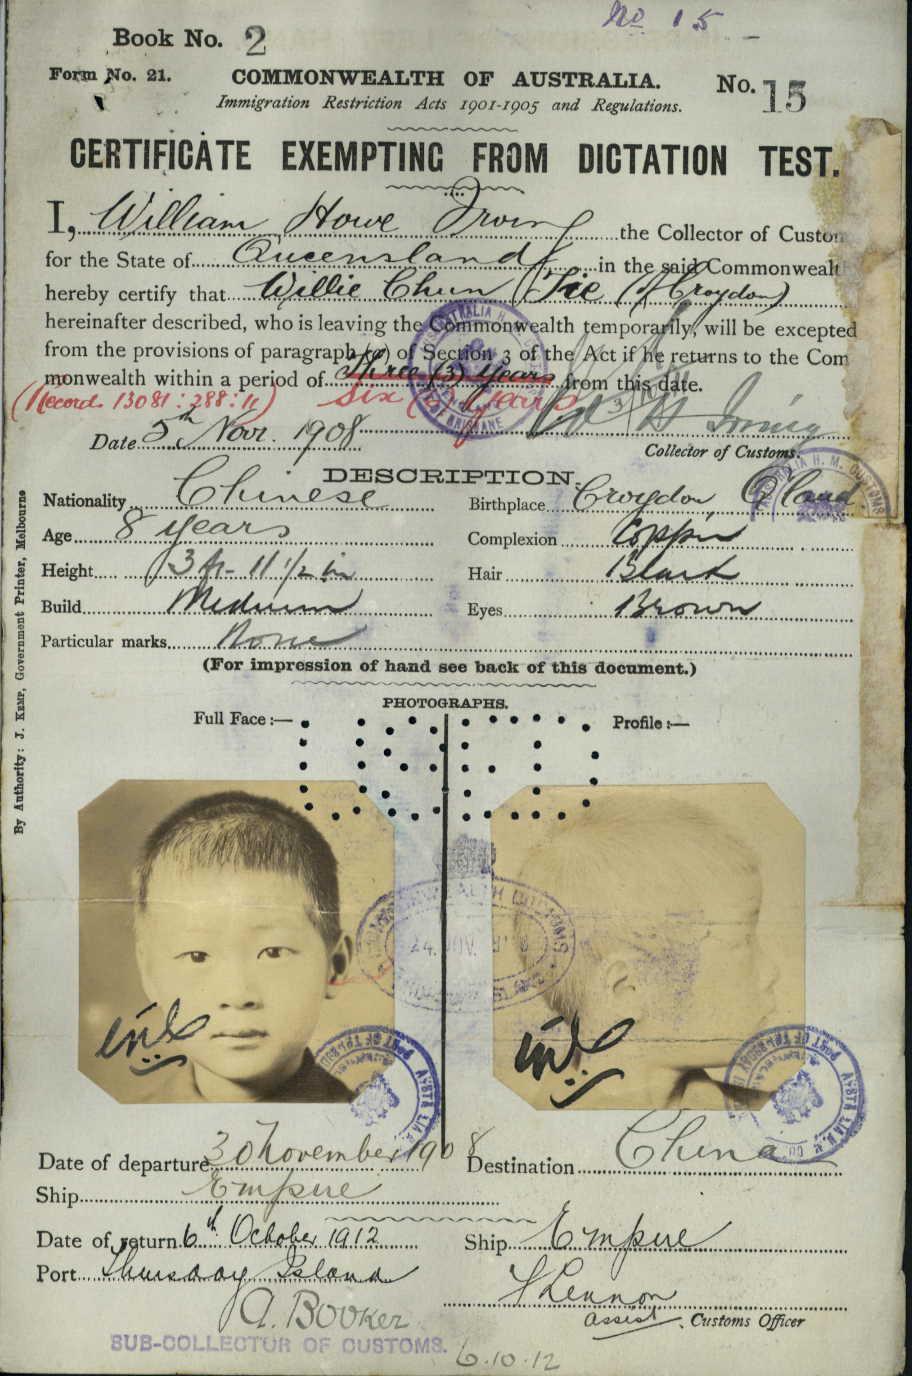 No 15
Book No. 2
Form No. 21.
COMMONWEALTH OF AUSTRALIA.
No. 15
Immigration Restriction Acts 1901-1905 and Regulations.
CERTIFICATE EXEMPTING FROM DICTATION TEST.
I, William Howe Irving the Collector of Custom
for the State of Queensland in the said Commonwealth
hereby certify that Willie Chun Tie (of Croydon)
hereinafter described, who is leaving the Commonwealth temporarily, will be excepted
from the provisions of paragraph (a) of Section 3 of the Act if he returns to the Com
monwealth within a period of three (3) years from this date.
(Record 13081:288:11) Six (6) years
Date 5th Novr. 1908
W H Irving
Collector of Customs.
DESCRIPTION.
Nationality Chinese
Birthplace Croydon Q'land
Age 8 years
Complexion Copper
Height 3 ft- 11 1/2 in
Hair Black
Build Medium
Eyes Brown
Particular marks None
(For impression of hand see back of this document.)
By Authority: J. KEMP, Government Printer, Melbourne
PHOTOGRAPHS.
Full Face:—
Profile:—
Date of departure 30 November 1908
Destination China
Ship Empire
Date of return 6th October 1912
Ship Empire
Port Thursday Island
A. Booker
SUB-COLLECTOR OF CUSTOMS.
6.10.12
assist. Customs Officer